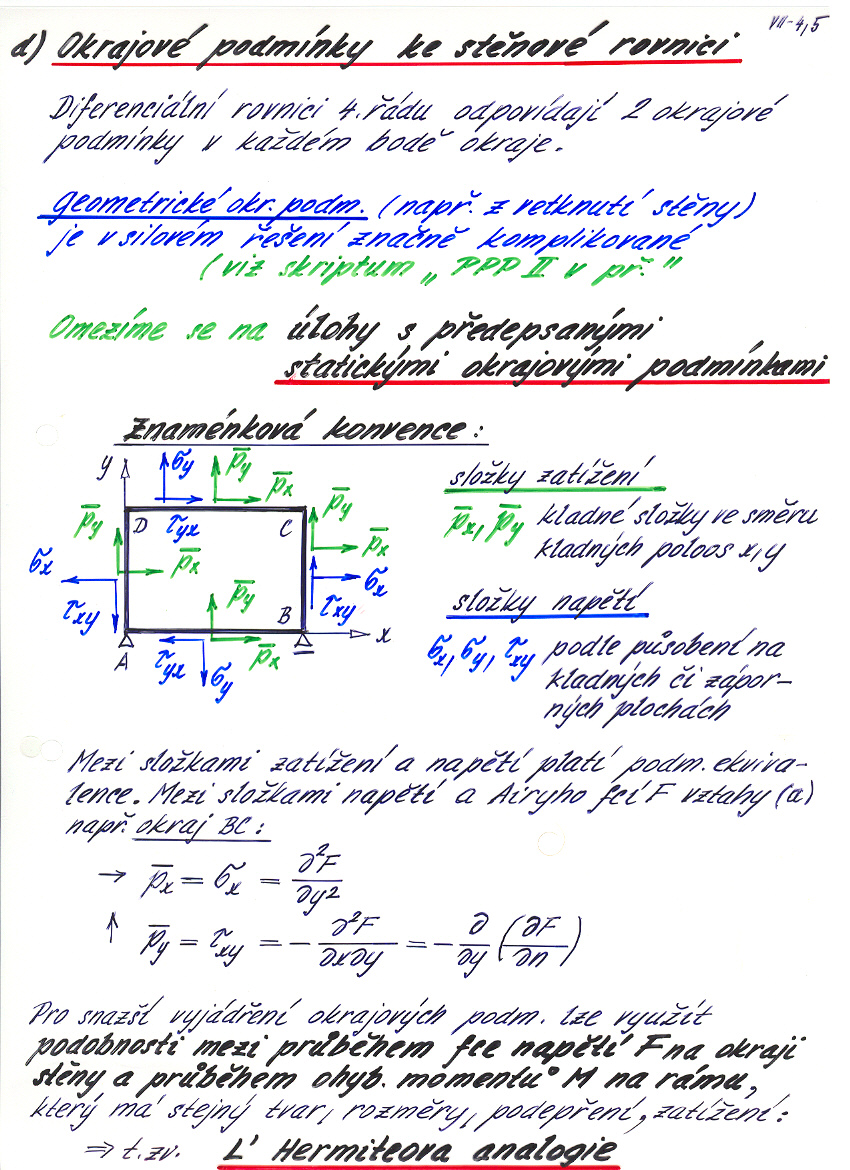 VII-4,5
d) Okrajové podmínky ke stěnové rovnici
Diferenciální rovnici 4. řádu odpovídají 2 okrajové
podmínky v každém bodě okraje.
Geometrické okr. podm. (např. z vetknutí stěny)
je v silovém řešení značně komplikované
(viz skriptum „PPP II v př."
Omezíme se na úlohy s předepsanými
statickými okrajovými podmínkami
Znaménková konvence:
y σy p̄y p̄x
p̄y D τyx C p̄y
p̄x p̄x
σx τxy p̄y B σx τxy
A τyx σy p̄x x
složky zatížení
p̄x, p̄y kladné složky ve směru
kladných poloos x, y
složky napětí
σx, σy, τxy podle působení na
kladných či zápor-
ných plochách
Mezi složkami zatížení a napětí platí podm. ekviva-
lence. Mezi složkami napětí a Airyho fcí F vztahy (a)
např. okraj BC:
→ p̄x = σx = ∂²F/∂y²
↑ p̄y = τxy = - ∂²F/∂x∂y = - ∂/∂y (∂F/∂n)
Pro snazší vyjádření okrajových podm. lze využít
podobnosti mezi průběhem fce napětí F na okraji
stěny a průběhem ohyb. momentů M na rámu,
který má stejný tvar, rozměry, podepření, zatížení:
⇒ t.zv. L' Hermiteova analogie